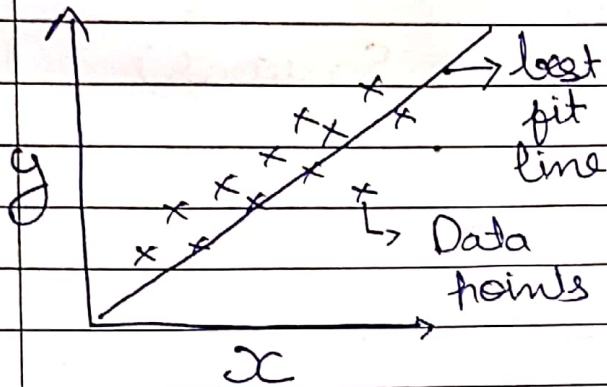 best
fit
line
y
Data
points
x